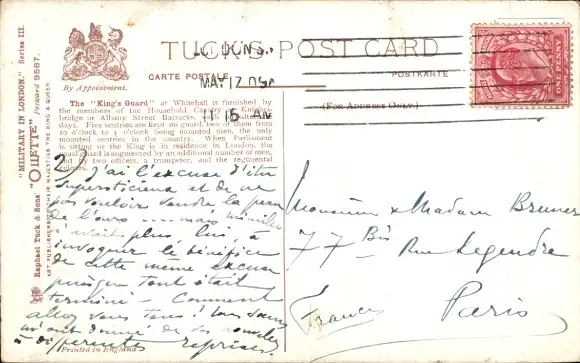 "MILITARY IN LONDON." Series III.
Raphael Tuck & Sons' "OILETTE" Postcard 9587.
ART PUBLISHERS TO THEIR MAJESTIES THE KING & QUEEN
By Appointment.
TUCK'S POST CARD
CARTE POSTALE
POSTKARTE
(FOR ADDRESS ONLY.)
LONDON. S.
MAY 17 05
11 15 AM
The "King's Guard" at Whitehall is furnished by
the members of the Household Cavalry at Knights-
bridge or Albany Street Barracks, on alternate
days. Five sentries are kept on guard, two of them from
10 o'clock to 4 o'clock being mounted men, the only
mounted sentries in the country. When Parliament
is sitting or the King is in residence in London, the
usual guard is augmented by an additional number of men,
and by two officers, a trumpeter, and the regimental
2) J'ai l'excuse d'être
superstitieux et de ne
pas vouloir vendre la peau
de l'ours .... mais
n'avait plus lieu à
invoquer le bénéfice
de cette même excuse
puisque tout était
terminé - Comment
allez vous tous! Vous
m'ont donné de vos nouvelles
à différentes reprises.
Printed in England
Monsieur & Madame Bruner
77 Bis Rue Legendre
Paris
France